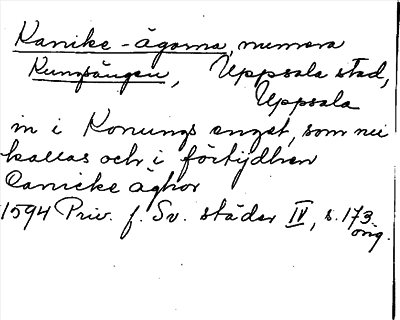 Kanike-ägorna, numera
Kungsängen, Uppsala stad,
Uppsala
in i Konungs enget, som nu
kallas och i förtijdhen
Canicke äghor
1594 Priv. f. Sv. städer IV, s. 173
orig.